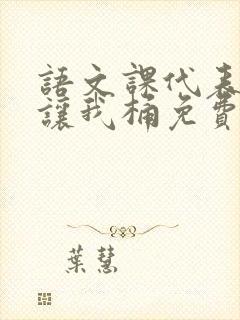 語文課代表
讓我桶免費
葉慧